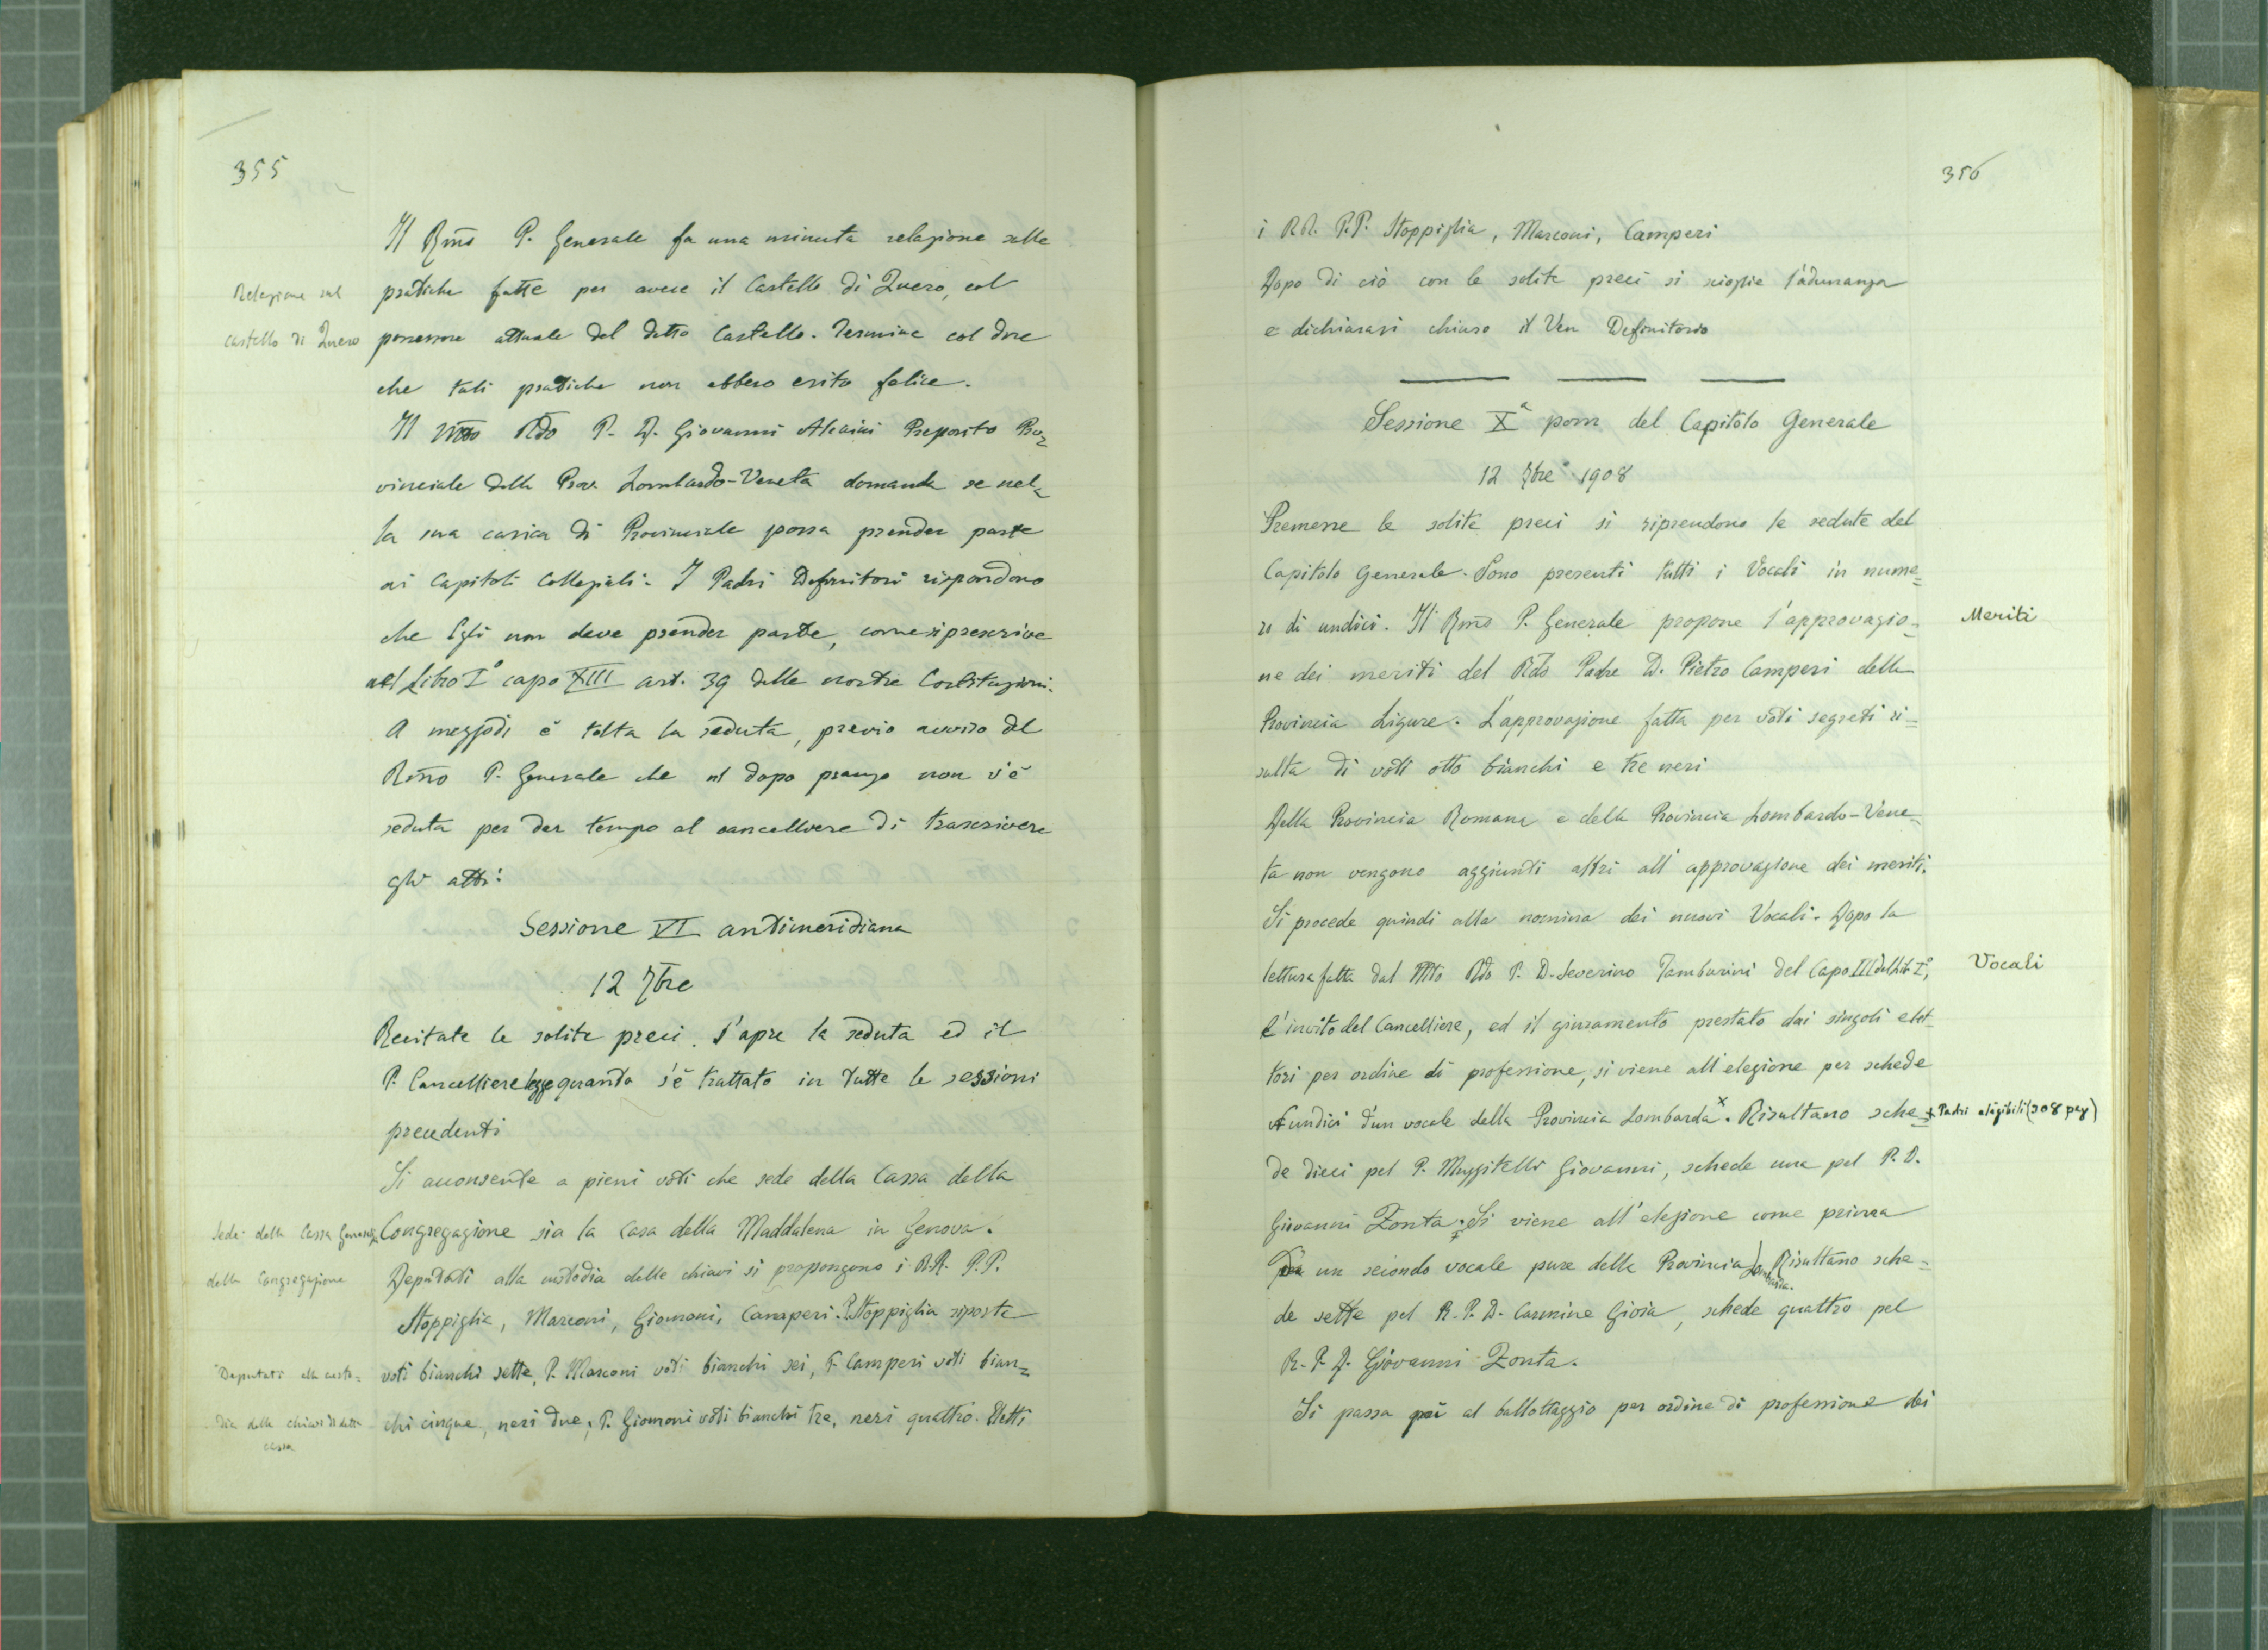 355
Il Rmo P. Generale fa una minuta relazione sulle
Relazione sul
pratiche fatte per avere il Castello di Quero, col
castello di Quero
possessore attuale del detto Castello. Termina col dire
che tali pratiche non ebbero esito felice.
Il Mto Rdo P. D. Giovanni Alcaini Preposito Pro=
vinciale della Prov. Lombardo-Veneta domanda se nel=
la sua carica di Provinciale possa prender parte
ai Capitoli Collegiali. I Padri Definitori rispondono
che Egli non deve prender parte, come si prescrive
nel Libro I° capo XIII art. 39 delle nostre Costituzioni.
A mezzodì è tolta la seduta, previo avviso del
Rmo P. Generale che nel dopo pranzo non v'è
seduta per dar tempo al cancelliere di trascrivere
gli atti.
Sessione VI antimeridiana
12 7bre
Recitate le solite preci. S'apre la seduta ed il
P. Cancelliere legge quanto s'è trattato in tutte le sessioni
precedenti
Si acconsente a pieni voti che sede della Cassa della
Sede della Cassa Generale
Congregazione sia la Casa della Maddalena in Genova.
della Congregazione
Deputati alla custodia delle chiavi si propongono i RR. P.P.
Stoppiglia, Marconi, Giomoni, Camperi. P. Stoppiglia riporta
Deputati alla custo=
voti bianchi sette, P. Marconi voti bianchi sei, P. Camperi voti bian=
dia delle chiavi di detta
cassa
chi cinque, neri due; P. Giomoni voti bianchi tre, neri quattro. Eletti
356
i RR. P.P. Stoppiglia, Marconi, Camperi
Dopo di ciò con le solite preci si scioglie l'adunanza
e dichiarasi chiuso il Ven Definitorio
Sessione Xª pom del Capitolo Generale
12 7bre 1908
Premesse le solite preci si riprendono le sedute del
Capitolo Generale. Sono presenti tutti i Vocali in nume=
ro di undici. Il Rmo P. Generale propone l'approvazio=
Meriti
ne dei meriti del Rdo Padre D. Pietro Camperi della
Provincia Ligure. L'approvazione fatta per voti segreti ri=
sulta di voti otto bianchi e tre neri
Della Provincia Romana e della Provincia Lombardo-Vene=
ta non vengono aggiunti altri all'approvazione dei meriti.
Si procede quindi alla nomina dei nuovi Vocali. Dopo la
lettura fatta dal Mto Rdo P. D. Severino Tamburini del Capo III del Lib. I°,
Vocali
l'invito del Cancelliere, ed il giuramento prestato dai singoli elet=
tori per ordine di professione, si viene all'elezione per schede
undici d'un vocale della Provincia Lombarda x. Risultano sche=
x Padri eleggibili (308 pag)
de dieci pel P. Muzzitelli Giovanni, schede una pel P. D.
Giovanni Zonta. Si viene all'elezione come prima
un secondo vocale pure della Provincia Lombarda. Risultano sche=
de sette pel R. P. D. Carmine Gioia, schede quattro pel
R. P. D. Giovanni Zonta.
Si passa poi al ballottaggio per ordine di professione dei